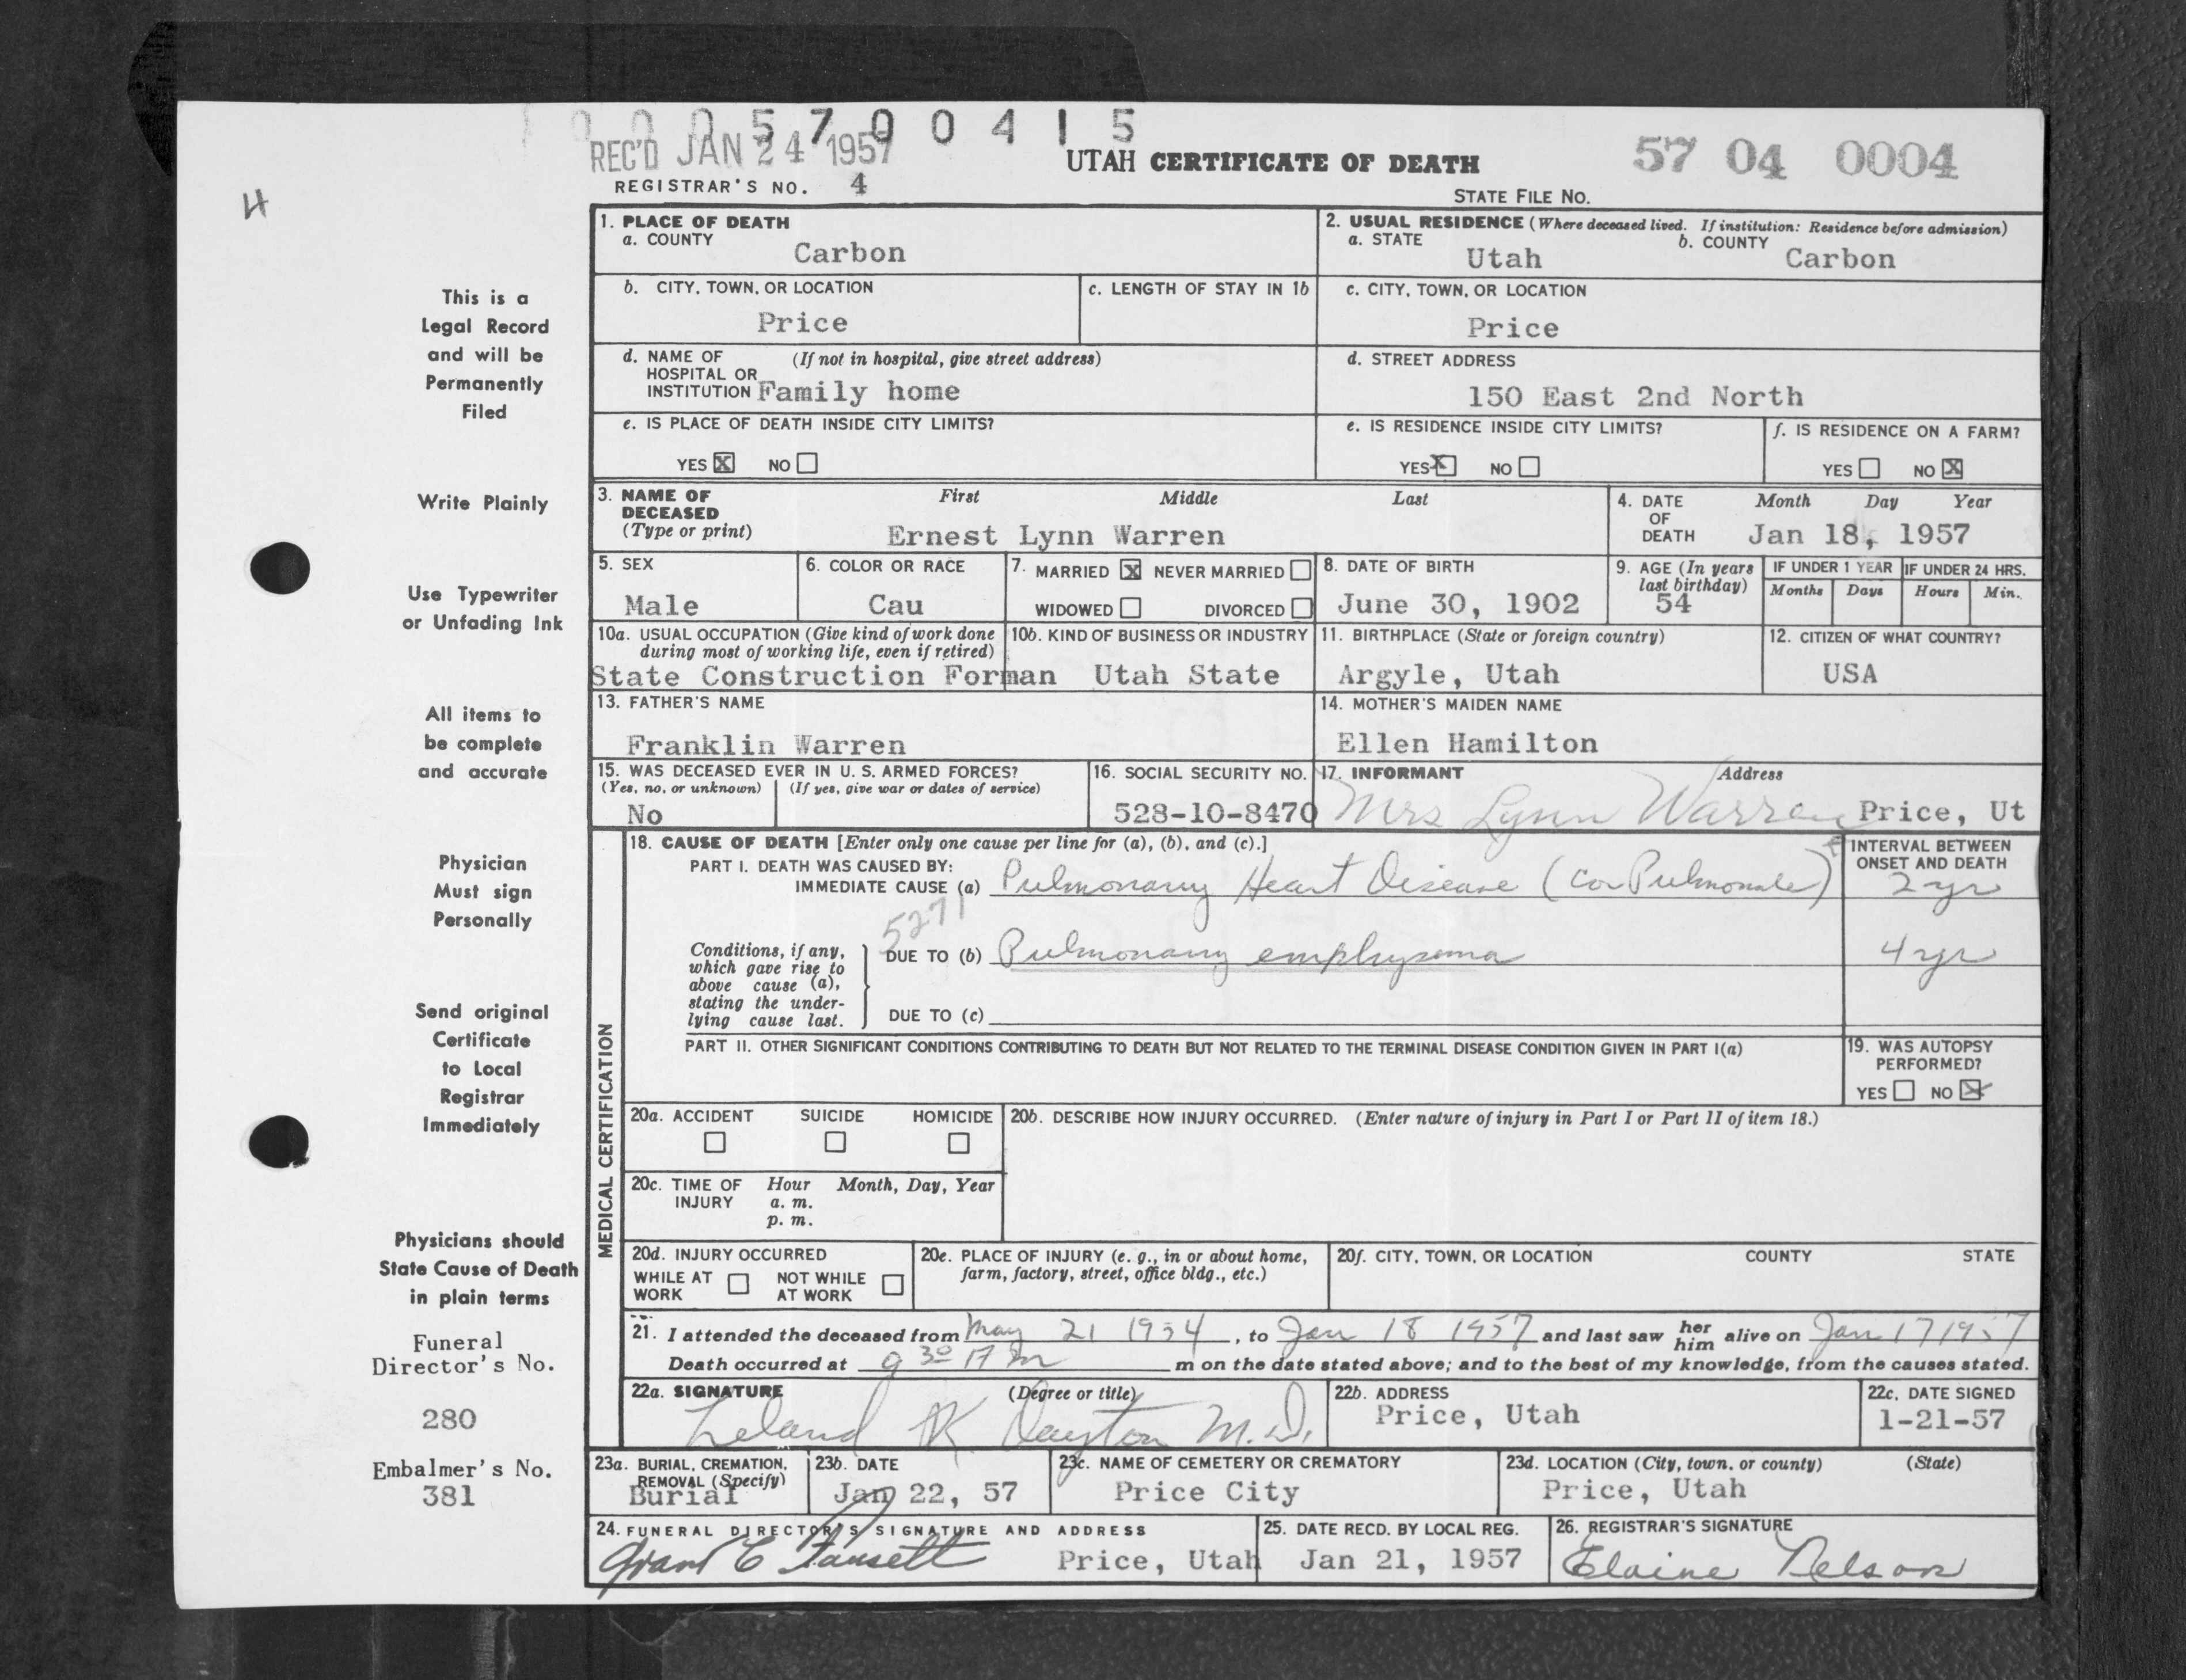 00057 00415
REC'D JAN 24 1957
UTAH CERTIFICATE OF DEATH
57 04 0004
REGISTRAR'S NO. 4
STATE FILE NO.
4
This is a
Legal Record
and will be
Permanently
Filed
Write Plainly
Use Typewriter
or Unfading Ink
All items to
be complete
and accurate
Physician
Must sign
Personally
Send original
Certificate
to Local
Registrar
Immediately
Physicians should
State Cause of Death
in plain terms
Funeral
Director's No.
280
Embalmer's No.
381
1. PLACE OF DEATH
a. COUNTY
Carbon
2. USUAL RESIDENCE (Where deceased lived. If institution: Residence before admission)
a. STATE b. COUNTY
Utah Carbon
b. CITY, TOWN, OR LOCATION
Price
c. LENGTH OF STAY IN 1b
c. CITY, TOWN, OR LOCATION
Price
d. NAME OF (If not in hospital, give street address)
HOSPITAL OR
INSTITUTION Family home
d. STREET ADDRESS
150 East 2nd North
e. IS PLACE OF DEATH INSIDE CITY LIMITS?
YES X NO
e. IS RESIDENCE INSIDE CITY LIMITS?
YES X NO
f. IS RESIDENCE ON A FARM?
YES NO X
3. NAME OF First Middle Last
DECEASED
(Type or print) Ernest Lynn Warren
4. DATE Month Day Year
OF
DEATH Jan 18, 1957
5. SEX
Male
6. COLOR OR RACE
Cau
7. MARRIED X NEVER MARRIED
WIDOWED DIVORCED
8. DATE OF BIRTH
June 30, 1902
9. AGE (In years
last birthday)
54
IF UNDER 1 YEAR
Months Days
IF UNDER 24 HRS.
Hours Min.
10a. USUAL OCCUPATION (Give kind of work done
during most of working life, even if retired)
State Construction Forman
10b. KIND OF BUSINESS OR INDUSTRY
Utah State
11. BIRTHPLACE (State or foreign country)
Argyle, Utah
12. CITIZEN OF WHAT COUNTRY?
USA
13. FATHER'S NAME
Franklin Warren
14. MOTHER'S MAIDEN NAME
Ellen Hamilton
15. WAS DECEASED EVER IN U. S. ARMED FORCES?
(Yes, no, or unknown) (If yes, give war or dates of service)
No
16. SOCIAL SECURITY NO.
528-10-8470
17. INFORMANT Address
Mrs Lynn Warren Price, Ut
MEDICAL CERTIFICATION
18. CAUSE OF DEATH [Enter only one cause per line for (a), (b), and (c).]
INTERVAL BETWEEN
ONSET AND DEATH
PART I. DEATH WAS CAUSED BY:
IMMEDIATE CAUSE (a) Pulmonary Heart Disease (Cor Pulmonale) 2 yr
5271
Conditions, if any,
which gave rise to
above cause (a),
stating the under-
lying cause last.
DUE TO (b) Pulmonary emphysema 4 yr
DUE TO (c)
PART II. OTHER SIGNIFICANT CONDITIONS CONTRIBUTING TO DEATH BUT NOT RELATED TO THE TERMINAL DISEASE CONDITION GIVEN IN PART I(a)
19. WAS AUTOPSY
PERFORMED?
YES NO X
20a. ACCIDENT SUICIDE HOMICIDE
20b. DESCRIBE HOW INJURY OCCURRED. (Enter nature of injury in Part I or Part II of item 18.)
20c. TIME OF Hour Month, Day, Year
INJURY a. m.
p. m.
20d. INJURY OCCURRED
WHILE AT NOT WHILE
WORK AT WORK
20e. PLACE OF INJURY (e. g., in or about home,
farm, factory, street, office bldg., etc.)
20f. CITY, TOWN, OR LOCATION COUNTY STATE
21. I attended the deceased from May 21 1954, to Jan 18 1957 and last saw her him alive on Jan 17 1957
Death occurred at 9 30 A m m on the date stated above; and to the best of my knowledge, from the causes stated.
22a. SIGNATURE (Degree or title)
Leland K. Dayton M.D.
22b. ADDRESS
Price, Utah
22c. DATE SIGNED
1-21-57
23a. BURIAL, CREMATION,
REMOVAL (Specify)
Burial
23b. DATE
Jan 22, 57
23c. NAME OF CEMETERY OR CREMATORY
Price City
23d. LOCATION (City, town, or county) (State)
Price, Utah
24. FUNERAL DIRECTOR'S SIGNATURE AND ADDRESS
Grant C Fausett Price, Utah
25. DATE RECD. BY LOCAL REG.
Jan 21, 1957
26. REGISTRAR'S SIGNATURE
Elaine Nelson